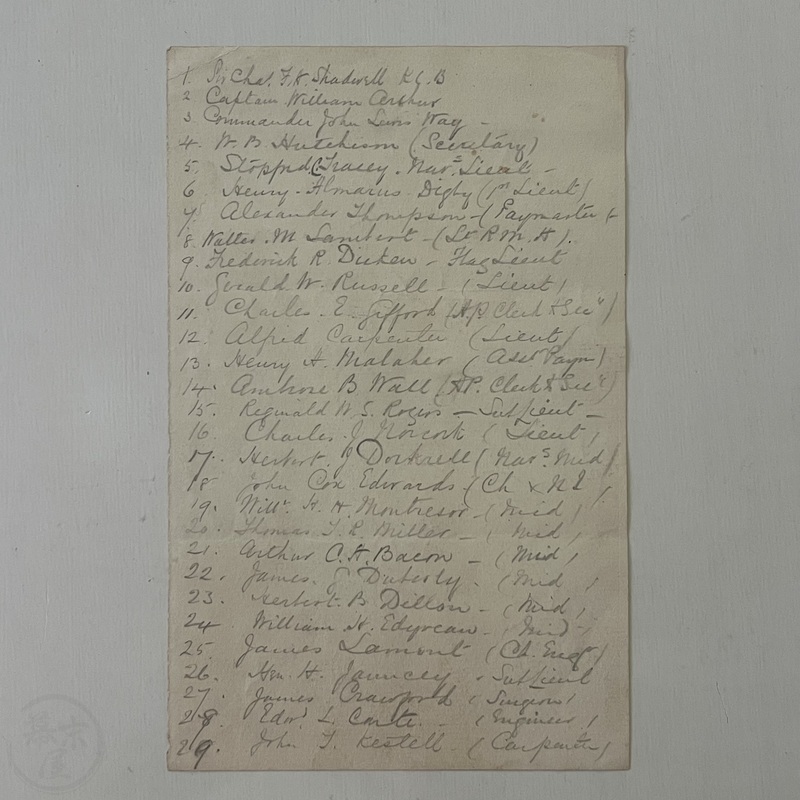 1. Sir Chas. F. A. Shadwell K.C.B
2 Captain William Arthur
3 Commander John Lewis Way - "
4. W. B. Hutchison (Secretary)
5. C. Tracey. Navg. Lieut -
6 Henry. Almarus. Digby (1st Lieut)
7. Alexander Thompson - (Paymaster
8. Walter. M Lambert - (Lt R. M. A).
9. Frederick R. Dicken - Flag Lieut
10. Gerald W. Russell - (Lieut)
11. Charles. E. Gifford (A.P. Clerk & Secy)
12. Alfred Carpenter (Lieut)
13. Henry H. Malaher (Asst Paym)
14. Ambrose B Wall (A.P. Clerk & Secy)
15. Reginald W. S. Rogers - Sub Lieut -
16. Charles. J. Norcock (Lieut)
17. Herbert. J Dockrell (Navg. Mid)
18 John Cox Edwards (Ch & N I)
19. Willm. H. H. Montresor - (Mid)
20. Thomas T. R. Miller - (Mid)
21. Arthur C. H. Bacon - (Mid)
22. James. G Duberly. (Mid)
23. Herbert. B Dillon - (Mid)
24. William H. Edyvean - (Mid)
25. James Lamont (Ch. Engr.)
26. Hen. H. Jauncey. Sub Lieut
27. James Crawford (Surgeon)
28. Edwd. L. Carte. - (Engineer)
29. John T. Kestell - (Carpenter)